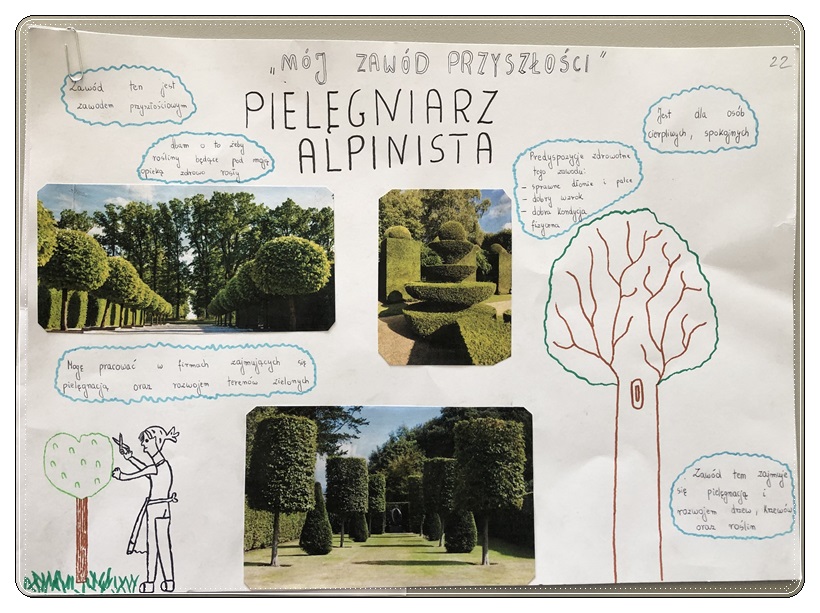 „MÓJ ZAWÓD PRZYSZŁOŚCI"
22
PIELĘGNIARZ
ALPINISTA
Zawód ten jest
zawodem przyszłościowym
dbam o to żeby
rośliny będące pod moją
opieką zdrowo rosły
Predyspozycje zdrowotne
tego zawodu:
- sprawne dłonie i palce
- dobry wzrok
- dobra kondycja
fizyczna
Jest dla osób
cierpliwych, spokojnych
Mogę pracować w firmach zajmujących się
pielęgnacją oraz rozwojem terenów zielonych
Zawód ten zajmuje
się pielęgnacją i
rozwojem drzew, krzewów
oraz roślin